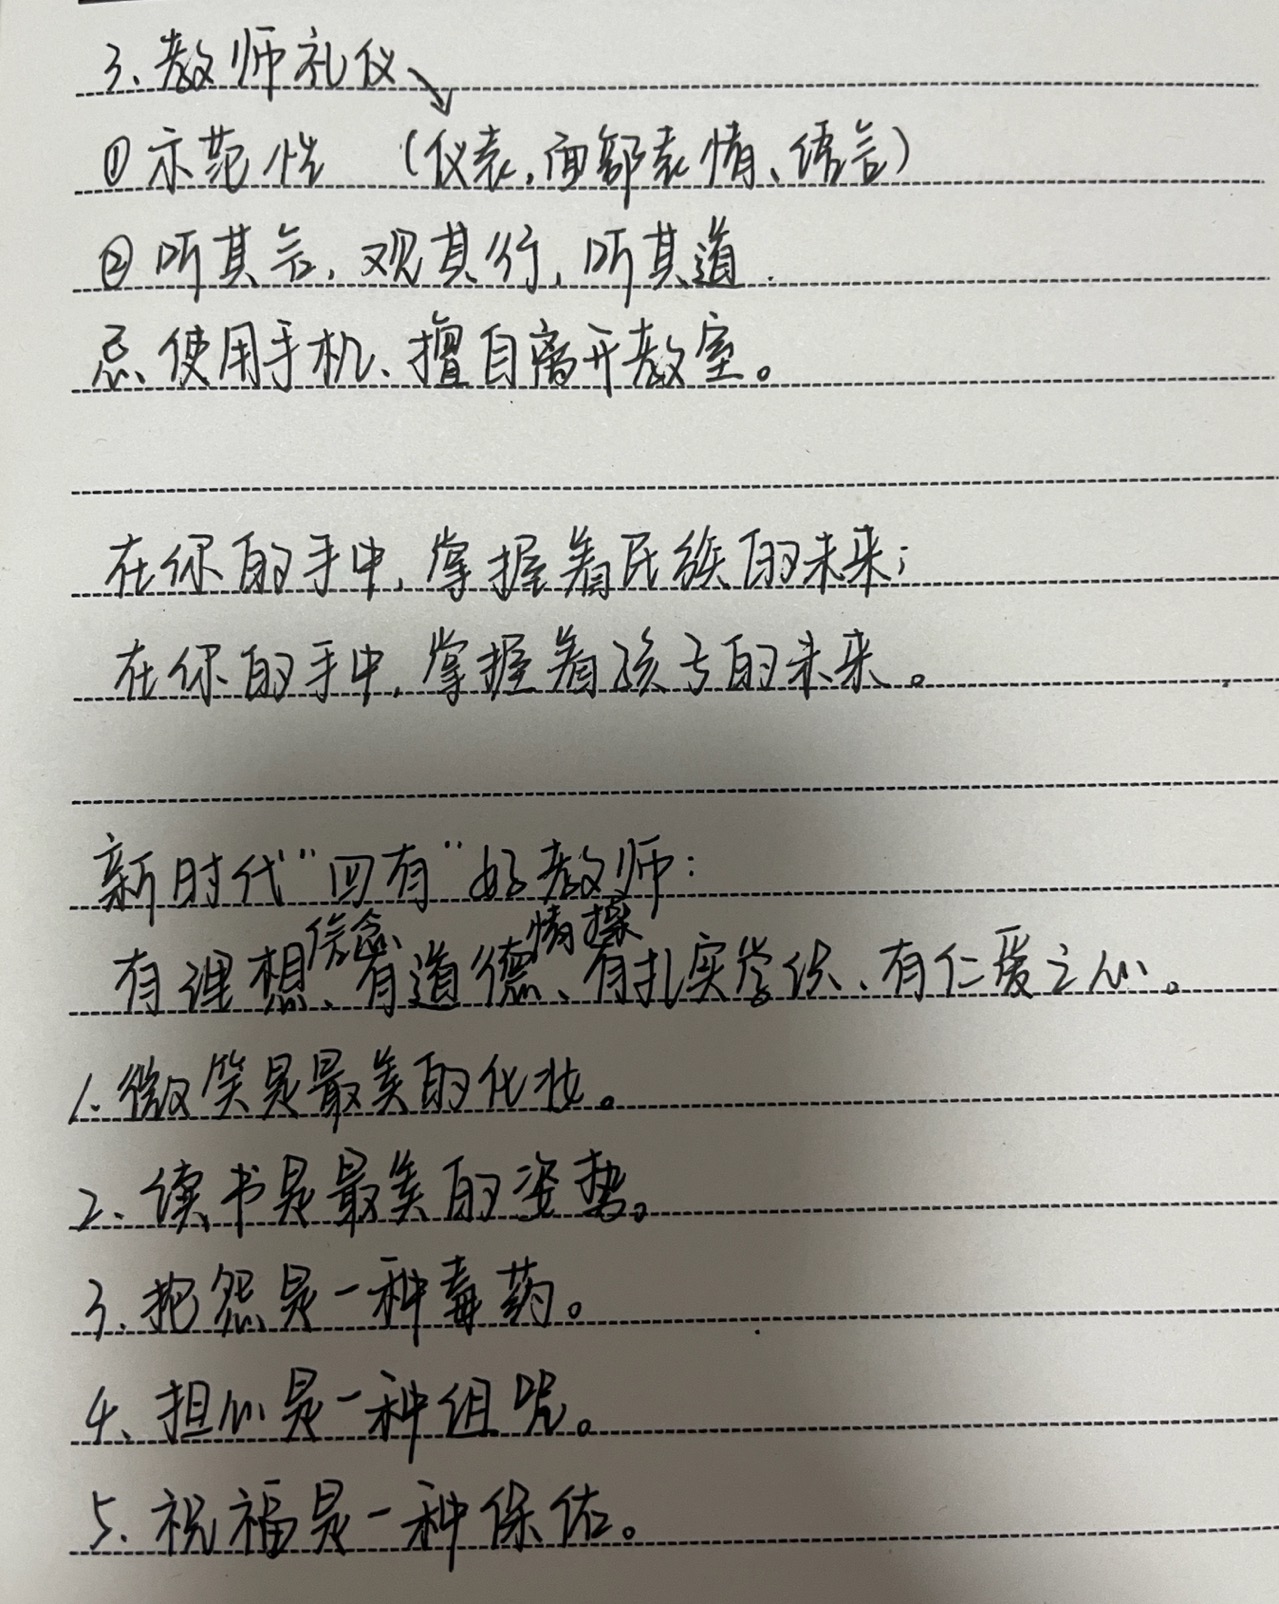 3、教师礼仪↘
①示范性 (仪表,面部表情、语言)
②听其言,观其行,听其道.
忌、使用手机、擅自离开教室。
在你的手中,掌握着民族的未来;
在你的手中,掌握着孩子的未来。
新时代“四有”好教师:
有理想信念、有道德情操、有扎实学识、有仁爱之心。
1.微笑是最美的化妆。
2、读书是最美的姿势。
3.抱怨是一种毒药。
4、担心是一种诅咒。
5.祝福是一种保佑。